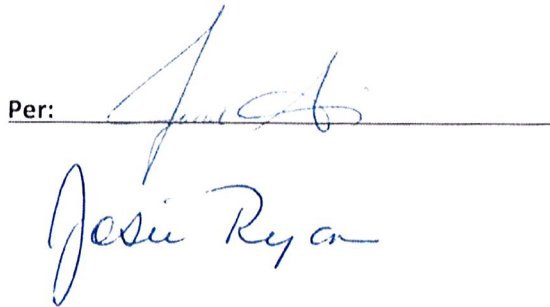 Per:
Josie Ryan